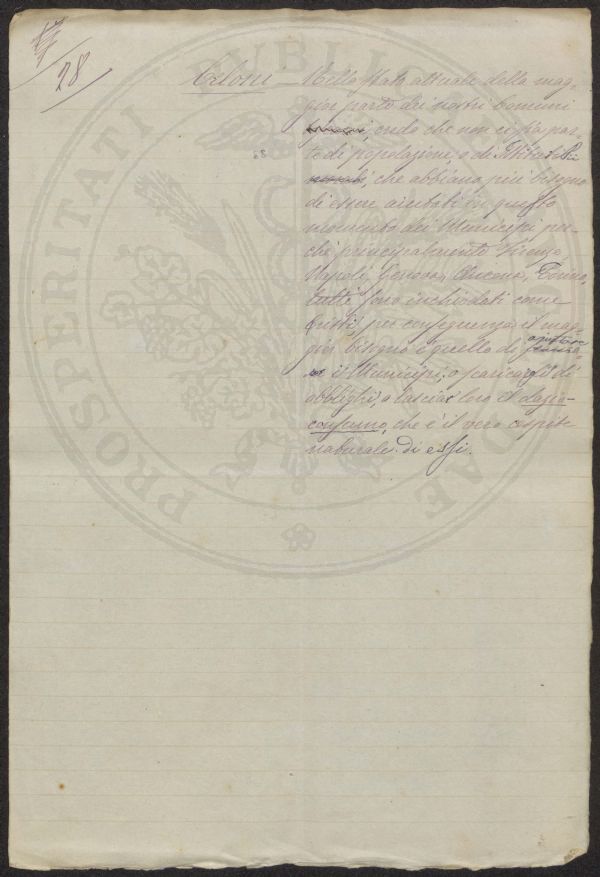 28
Nello stato attuale della mag-
gior parte dei nostri comuni
credo che non ci sia par-
te di popolazione, o di
che abbiano più bisogno
di essere aiutati in questo
momento dei Municipi per-
chè principalmente Firenze,
Napoli, Genova, Ancona, Torino,
tutti sono inchiodati come
Cristi, per conseguenza il mag-
gior bisogno è quello di ajutare
i Municipi, o scaricarli di
obblighi, o lasciar loro il dazio-
consumo, che è il vero cespite
naturale di essi.
PROSPERITATI PUBLICAE